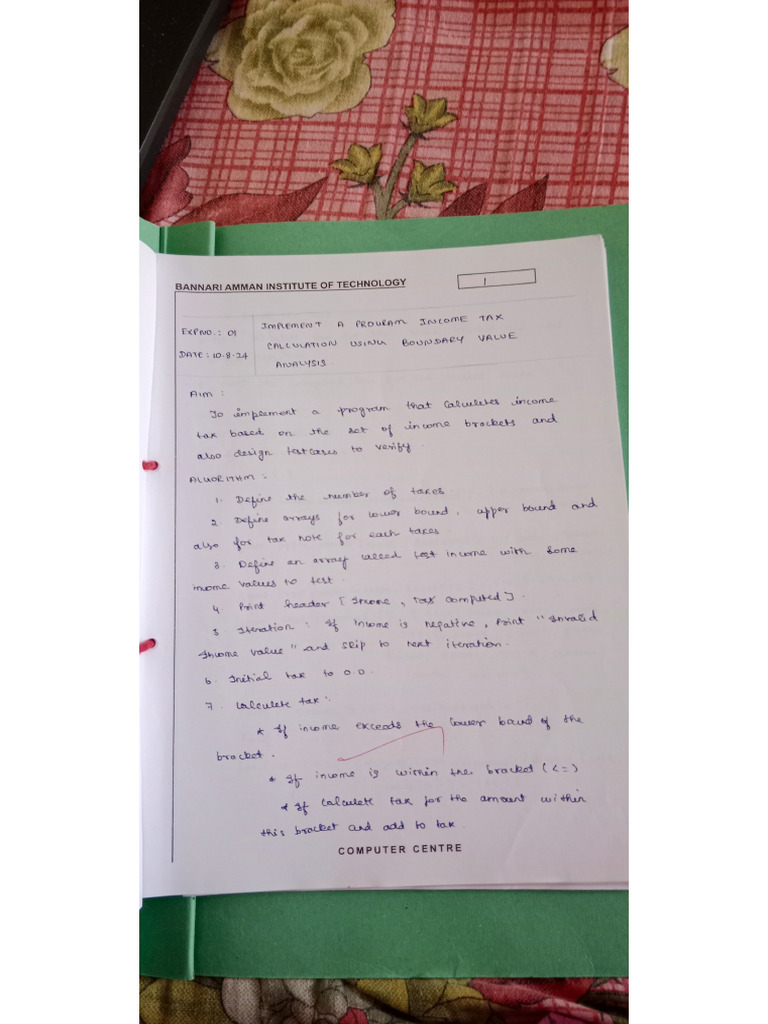 BANNARI AMMAN INSTITUTE OF TECHNOLOGY
1
EXP NO.: 01
IMPLEMENT A PROGRAM INCOME TAX
CALCULATION USING BOUNDARY VALUE
DATE: 10.8.24
ANALYSIS
AIM :
To implement a program that calculates income
tax based on the set of income brackets and
also design testcases to verify.
ALGORITHM :
1. Define the number of taxes.
2. Define arrays for lower bound, upper bound and
also for tax note for each taxes.
3. Define an array called test income with some
income values to test.
4. Print header [Income, Tax computed].
5. Iteration : If Income is negative, Print "Invalid
Income value" and skip to next iteration.
6. Initial tax to 0.0.
7. Calculate tax :
* If income exceeds the lower bound of the
bracket.
* If income is within the bracket (<=)
* If calculate tax for the amount within
this bracket and add to tax.
COMPUTER CENTRE